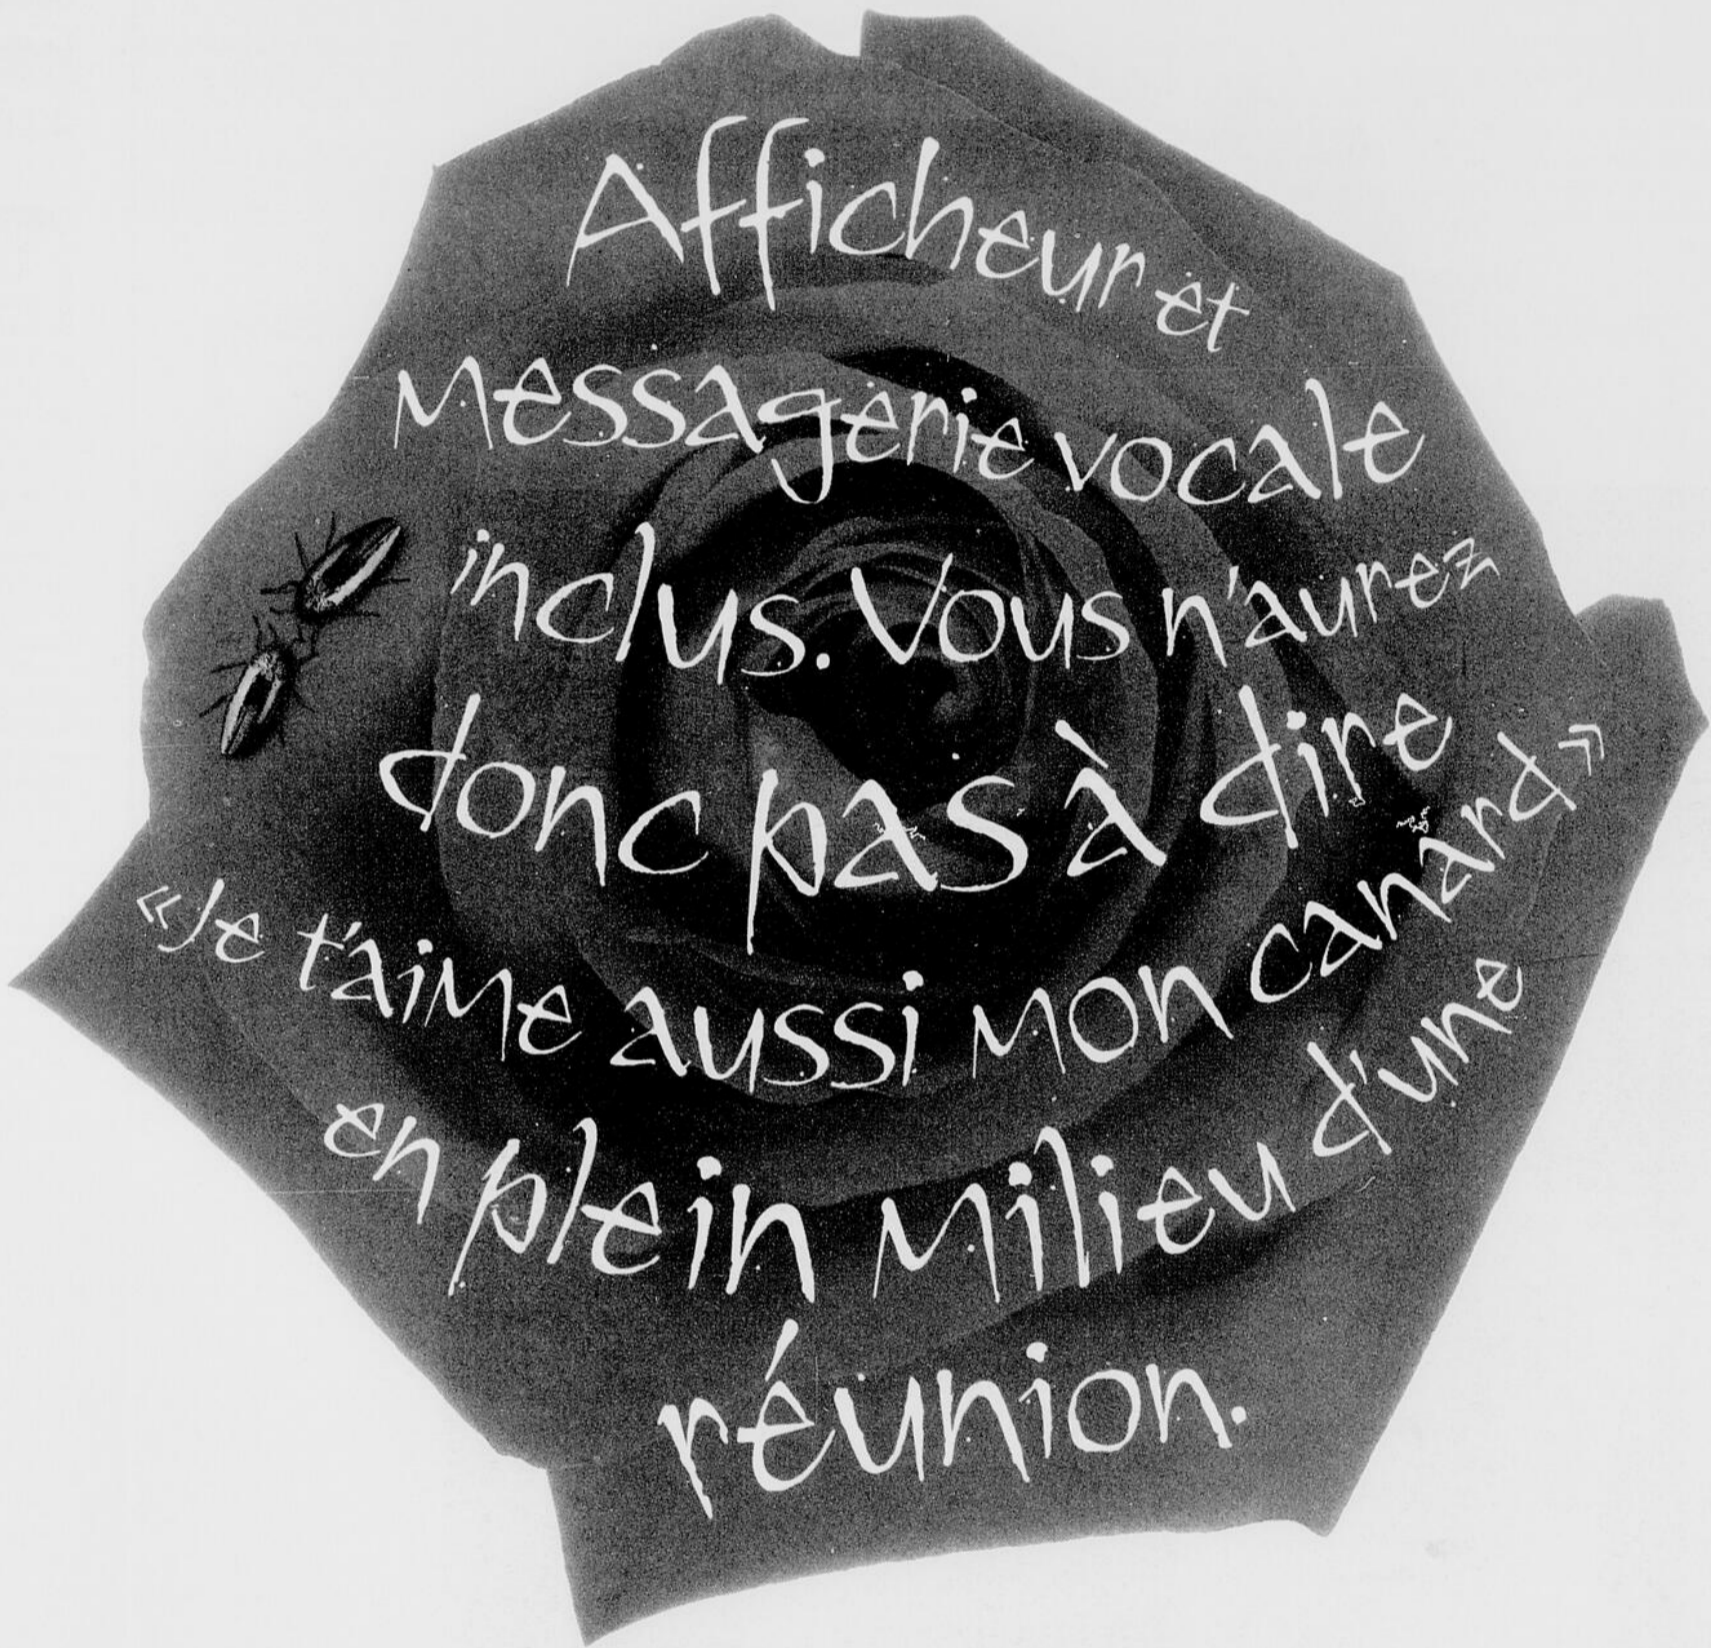 Afficheur et
messagerie vocale
inclus. Vous n'aurez
donc pas à dire
«Je t'aime aussi mon canard»
en plein milieu d'une
réunion.